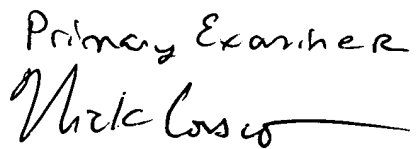 Primary Examiner
Nick Corsaro